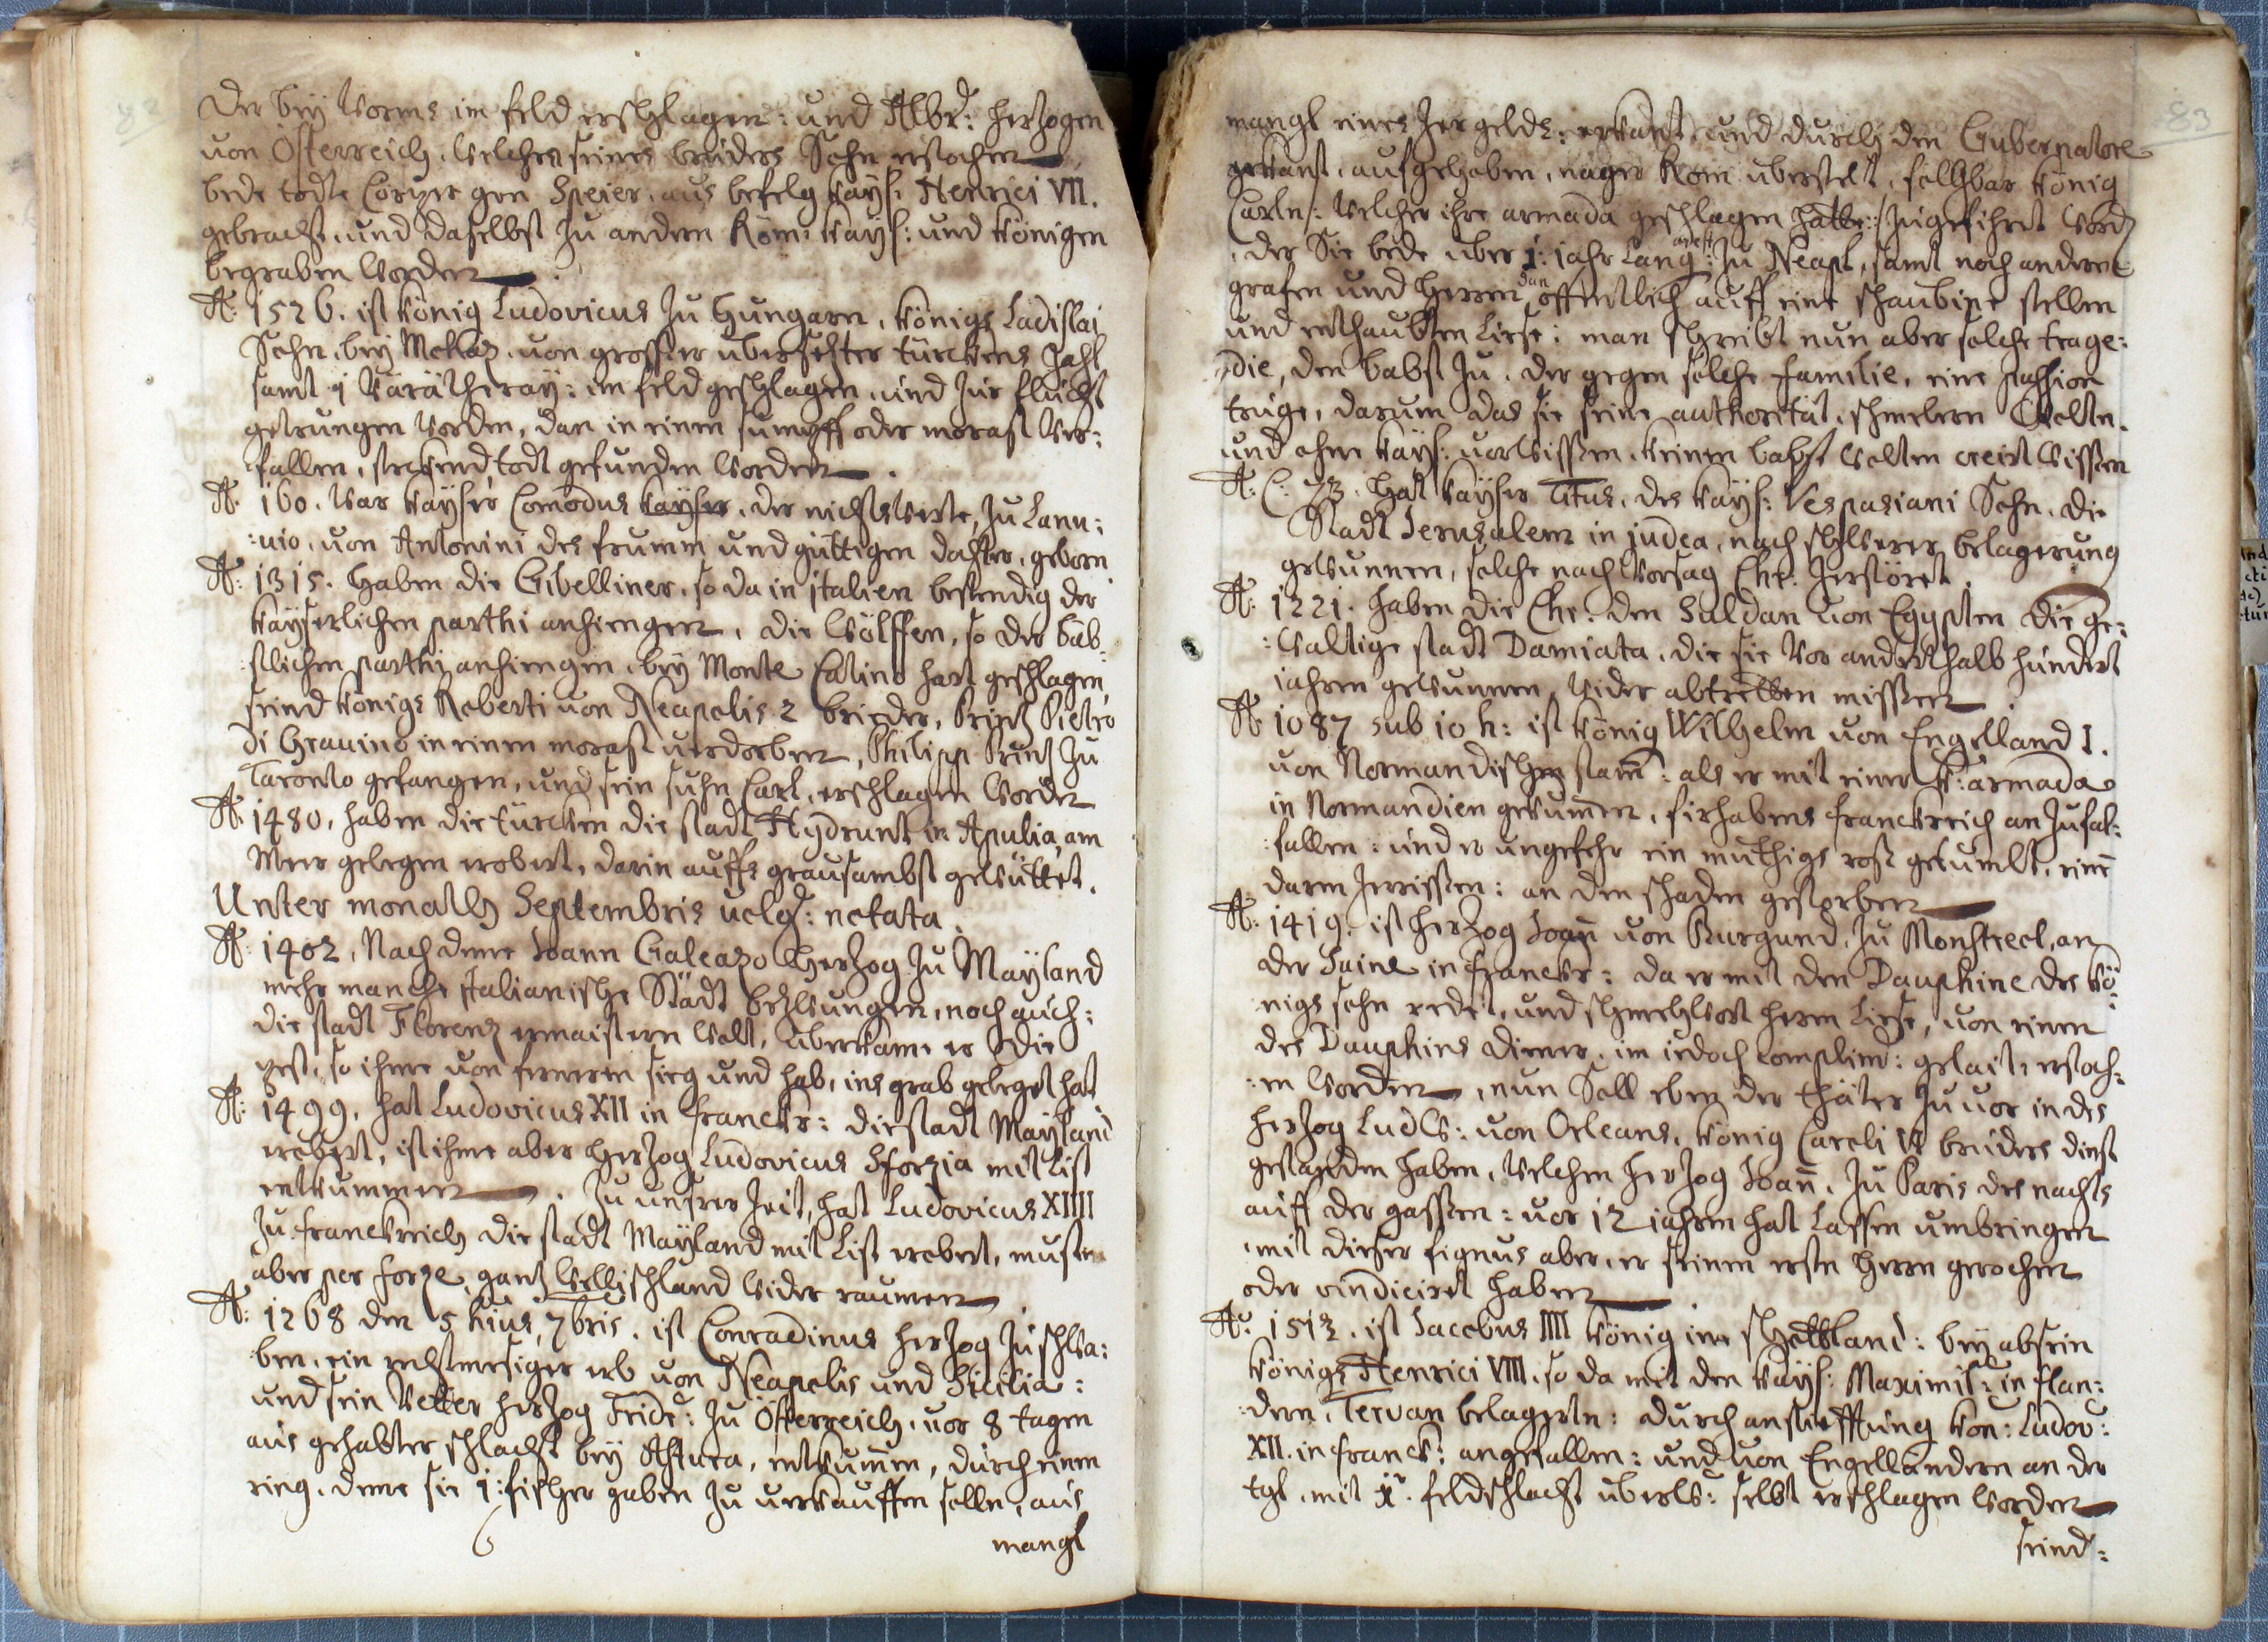 82
der beÿ Worms im feld erschlagen: und Albr: herzogen
von Österreich, welchen seines bruders Sohn erstochen
bede todte Cörper gen Speier, aus befelg kaÿs: Henrici VII.
gebracht, und daselbst zu andern Röm: kaÿs: und königen
begraben worden.
A: 1526. ist könig Ludovicus zu Hungarn, königs Ladislai
Sohn, beÿ Mohaz, von grosser übersetzter türckens zahl
samt im feld geschlagen, und zur flucht
getrungen worden, dan in einem sumpff oder morast ver:
fallen, steckend todt gefunden worden.
A: 160. war kaÿser Comodus kaÿser, der nichtswerte, zu Lanu:
:vio, von Antonini des frumm und güttigen dochter, geborn
A: 1315. haben die Gibelliner, so da in italien bestendig der
kaÿserlichen parthi anhiengen, die Wölffen, so der bäb:
stlichen parthi anhiengen, beÿ Monte Catino hart geschlagen,
seind königs Roberti von Neapolis 2 brieder, Prinz Pietro
di Gravino in einem morast verdorben, Philipp Prinz zu
Taronto gefangen, und sein suhn Carl, erschlagen worden
A: 1480, haben die türcken die stadt Hÿdrunt in Apulia, am
Meer gelegen erobert, darin auffs grausambst gewüttet.
Unter monath Septembris volgt: notata.
A: 1402, Nach deme Joann Galeazo Herzog zu Maÿland
mehr manche italianische Städt bezwungen, noch auch:
die stadt Florenz ermaistern wolt, überkam er die
pest, so ihme von fernern sieg und hab, ins grab geleget hat
A: 1499, hat Ludovicus XII in franckr: die stadt Maÿland
erobert, ist ihme aber Herzog Ludovicus Sforzia mit list
entkummen. Zu unser zeit, hat Ludovicus XIIII
zu franckreich die stadt Maÿland mit list erobert, muste
aber per forze, ganz Wellischland wider raumen
A: 1268 den 5 huius, 7bris. ist Conradinus herzog zu schwa:
ben, ein rechtmesiger erb von Neapolis und Sicilia:
und sein Vetter herzog Fridr: zu Österreich, vor 8 tagen
aus gehabter schlacht beÿ Astura, entkumen, durch einen
ring, deme sie 1: fischer gaben zu verkauffen solle, aus
mangl
83
mangl eines zergelds: erkant, und durch den Gubernatore
erkant, aufgehaben, nager Rom überstelt, selbbar könig
Carln: welcher ihre armada geschlagen hatte:/zugefihrt word
, der Sie bede über 1: jahr lang arest: zu Neapl, samt noch andern
grafen und Herren dan öffentlich auff eine schaubine stellen
und enthaubten liese: man schreibt nun aber solche trage:
:die, den babst zu, der gegen solche familie, eine passion
truge, darum das sie seine authoritat, schmelern wolten.
und ohne kaÿs: vorwissen, keinen babst wolten creirt wissen
A: C: 73. hat kaÿser Titus, des kaÿs: Vespasiani Sohn, die
Stadt Jerusalem in judea, nach schwerer belagerung
gewunnen, solche nach vorsag Chr: zerstöret.
A: 1221. haben die Chr: den Suldan von Egypten die ge:
:waltige stadt Damiata, die sie vor anderthalb hundert
jahren gewunnen, wider abtretten missen.
A: 1087 sub 10 h: ist könig Wilhelm von Engelland I.
von Normandischen stam: als er mit einer k: armada
in Normandien gekumen, firhabens franckreich an zufal:
:fallen: und er ungefehr ein muthigs ross getumlt, eine
darm zerrissen: an den schaden gestorben
A: 1419. ist herzog Joan von Burgund, zu Monstreel, an
der Saine in franckr: da er mit den Dauphine des kö:
nigs sohn redet, und schmehwort hern liese, von einem
des Dauphins diener, im iedoch complim: gelait, erstoch:
:en worden, nun Soll eben der thäter zuvor in des
herzog Ludw: von Orleans, könig Caroli VI bruders dinst
gestanden haben, welchen herzog Joan, zu Paris des nachts
auff der gassen: vor 12 jahren hat lassen umbringen
, mit dieser aber, er seinen ersten Herrn gerochen
oder vindiciret haben
A: 1513. ist Jacobus IIII könig inn schottland: beÿ absein
königs Henrici VIII. so da mit den kaÿs: Maximil: in flan:
:dern, Tervan belagerte: durch anstifftung kön: Ludov:
XII. in franck: angefallen: und von Engellandern an der
tgl. mit 1r. feldschlacht überw: selbst erschlagen worden
seind: